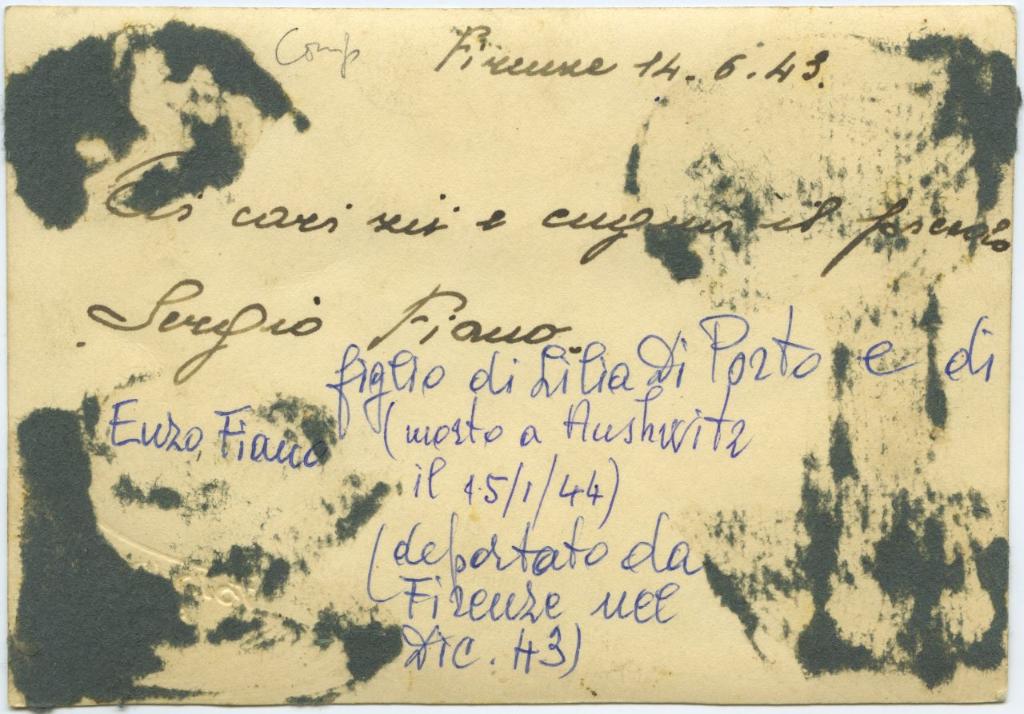 Comp
Firenze 14.6.43.
Ai cari zii e cugini il piccolo
Sergio Fiano
figlio di Lilia Di Porto e di
Enzo Fiano (morto a Aushwitz
il 15/1/44)
(deportato da
Firenze nel
DIC. 43)